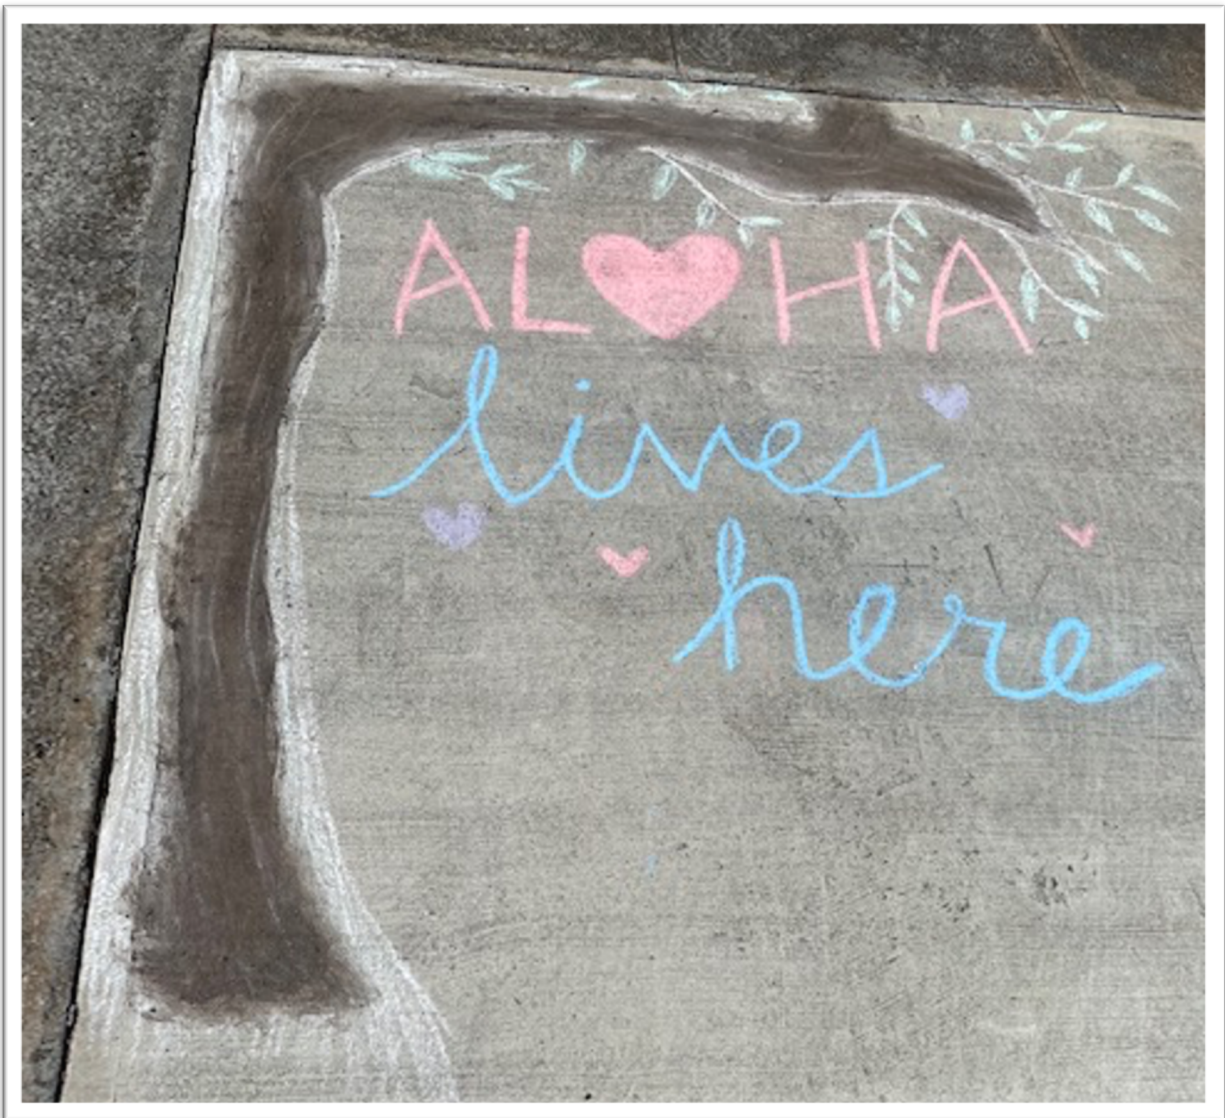 AL♥HA
lives
here